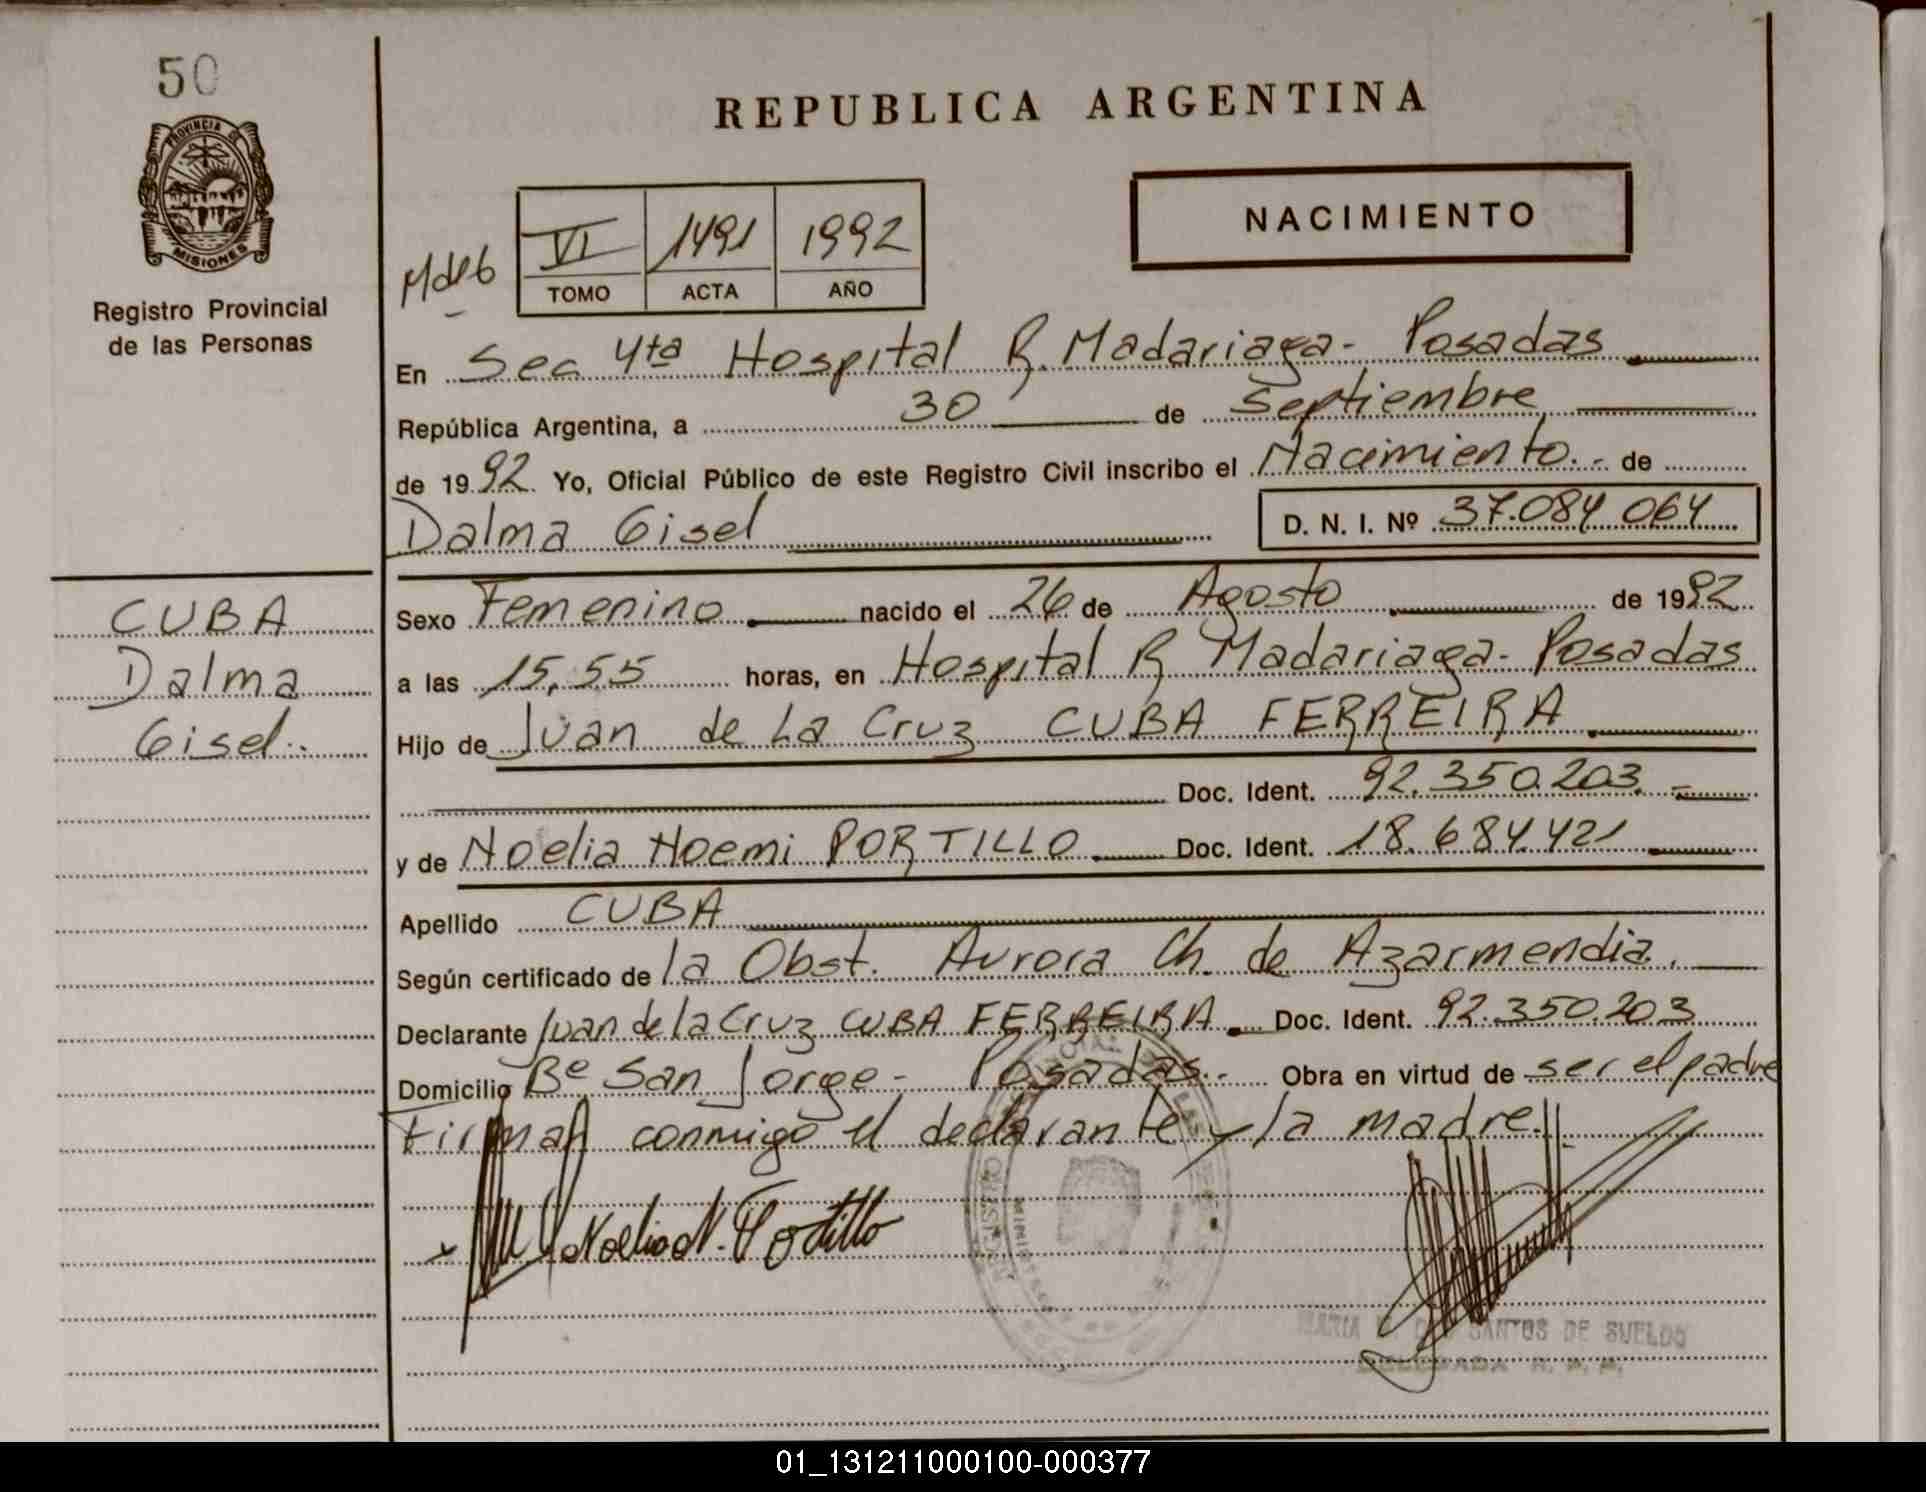 50
PROVINCIA DE
MISIONES
Registro Provincial
de las Personas
REPUBLICA ARGENTINA
NACIMIENTO
VI 1491 1992
TOMO ACTA AÑO
En Sec 4ta Hospital R. Madariaga - Posadas
República Argentina, a 30 de Septiembre
de 1992 Yo, Oficial Público de este Registro Civil inscribo el Nacimiento.- de
Dalma Gisel D. N. I. Nº 37.084 064
CUBA
Dalma
Gisel.
Sexo Femenino nacido el 26 de Agosto de 1992
a las 15,55 horas, en Hospital R Madariaga - Posadas
Hijo de Juan de La Cruz CUBA FERREIRA
Doc. Ident. 92.350.203.
y de Noelia Noemi PORTILLO Doc. Ident. 18.684.421
Apellido CUBA
Según certificado de la Obst. Aurora Ch. de Azarmendia.
Declarante Juan de la Cruz CUBA FERREIRA. Doc. Ident. 92.350.203
Domicilio Bº San Jorge - Posadas.- Obra en virtud de ser el padre
Firman conmigo el declarante y la madre.
Noelia N. Portillo
MARIA SANTOS DE SUELDO
DELEGADA R. P. P.
01_131211000100-000377